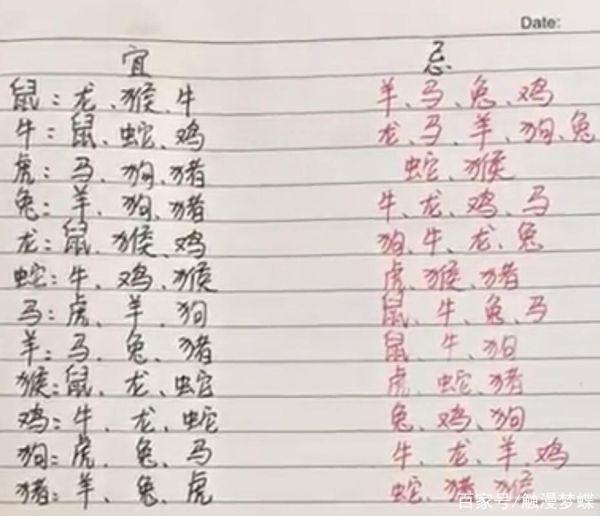 Date:
宜 忌
鼠:龙、猴、牛 羊、马、兔、鸡
牛:鼠、蛇、鸡 龙、马、羊、狗、兔
虎:马、狗、猪 蛇、猴
兔:羊、狗、猪 牛、龙、鸡、马
龙:鼠、猴、鸡 狗、牛、龙、兔
蛇:牛、鸡、猴 虎、猴、猪
马:虎、羊、狗 鼠、牛、兔、马
羊:马、兔、猪 鼠、牛、狗
猴:鼠、龙、蛇 虎、蛇、猪
鸡:牛、龙、蛇 兔、鸡、狗
狗:虎、兔、马 牛、龙、羊、鸡
猪:羊、兔、虎 蛇、猪、猴
百家号/触漫梦蝶